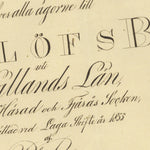 alla ägorne till
LÖFSB
uti
llands Län,
Håsad och Fjärås Socken,
vid Laga Skifte år 1855
af